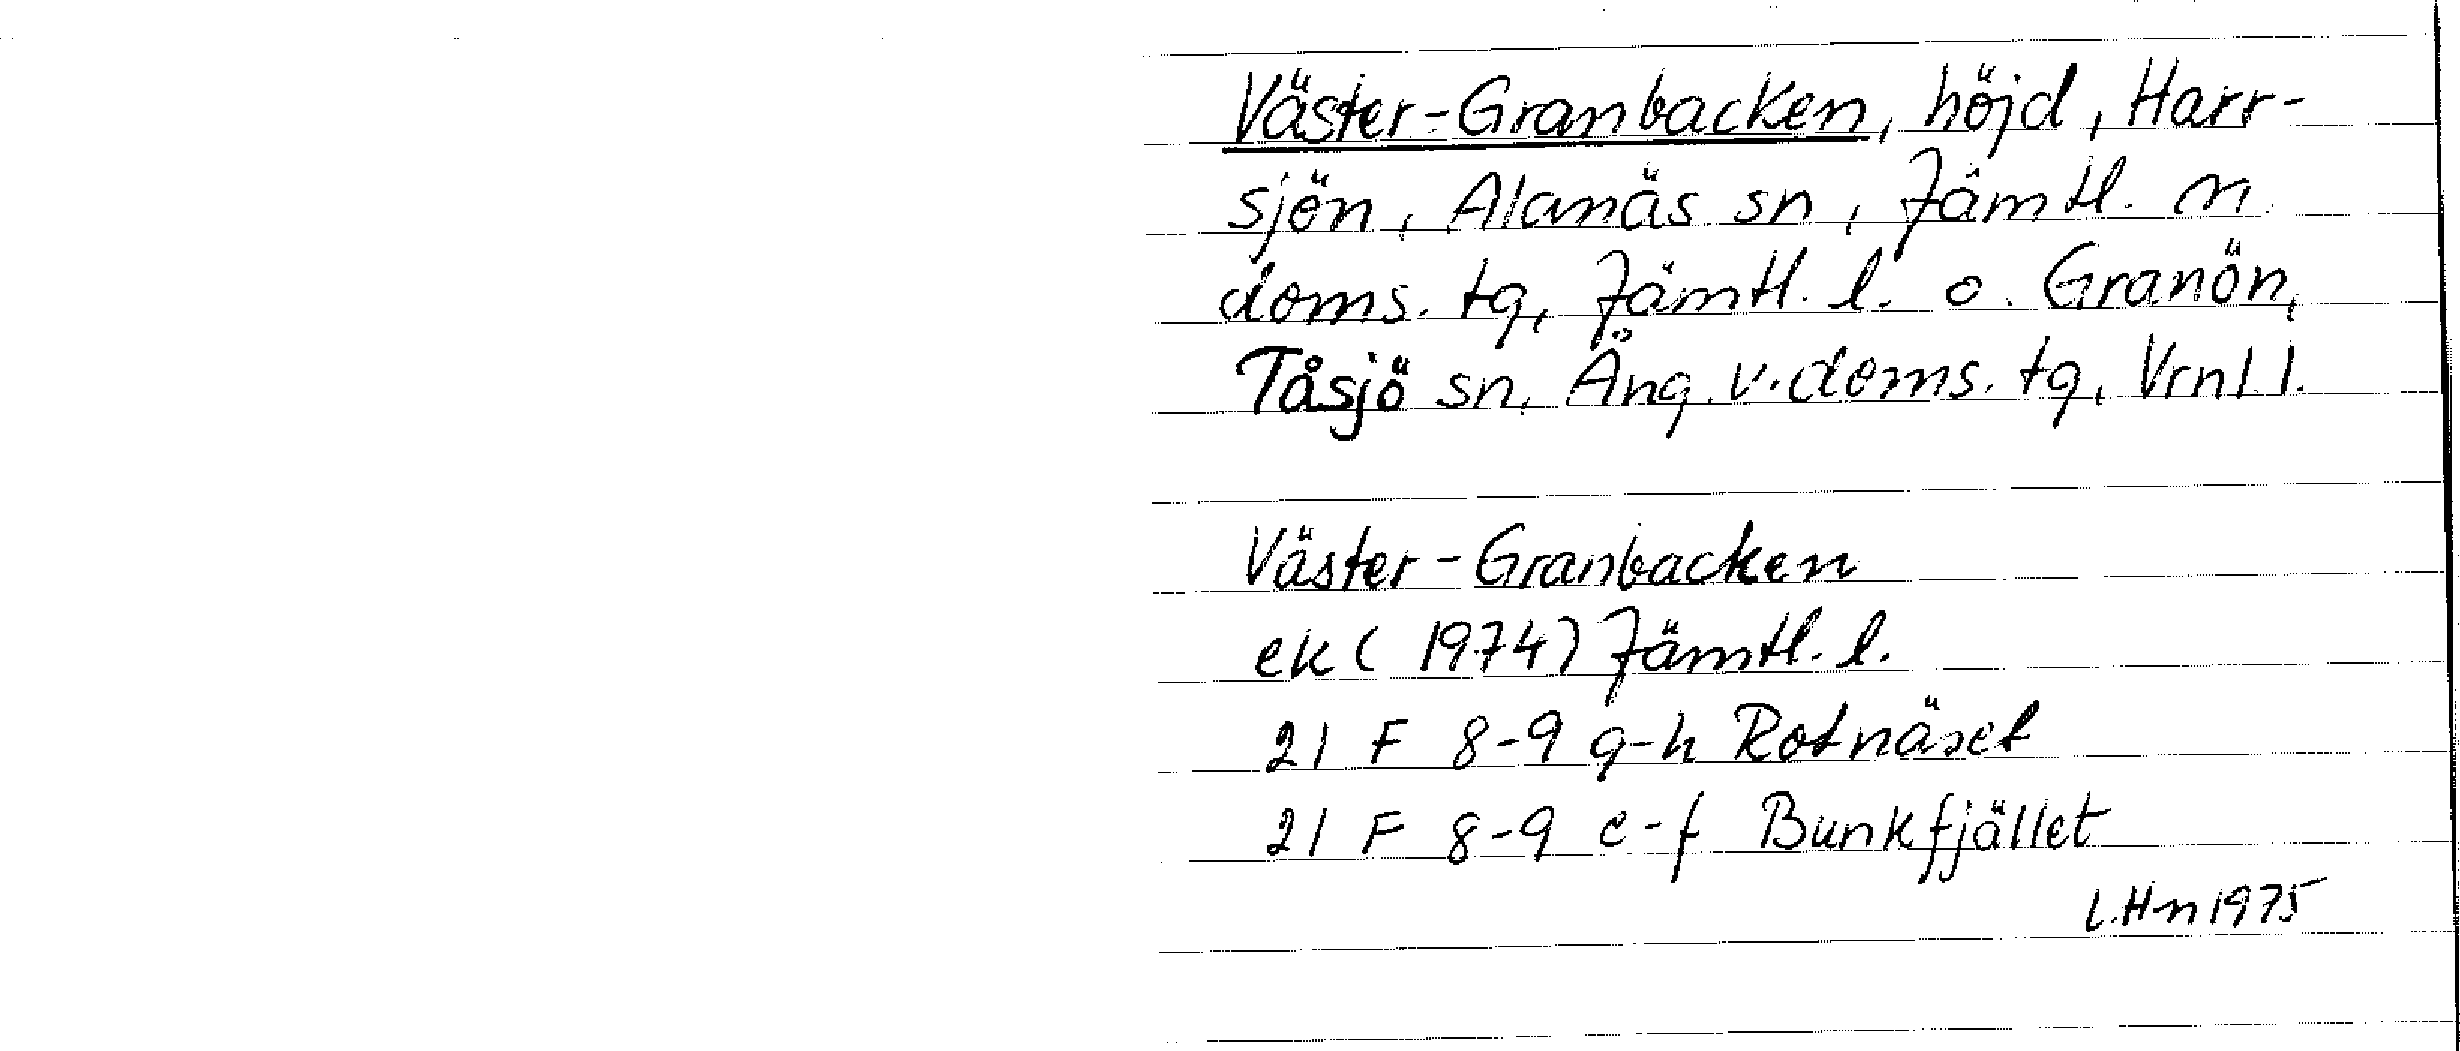 Väster-Granbacken, höjd, Harr-
sjön, Alanäs sn, Jämtl. n.
doms. tg, Jämtl. l. o. Granön,
Tåsjö sn, Ång. v. doms. tg, Vrnl l.
Väster-Granbacken
ek (1974) Jämtl. l.
21 F 8-9 g-h Rotnäset
21 F 8-9 e-f Bunkfjället
L.Hn 1975